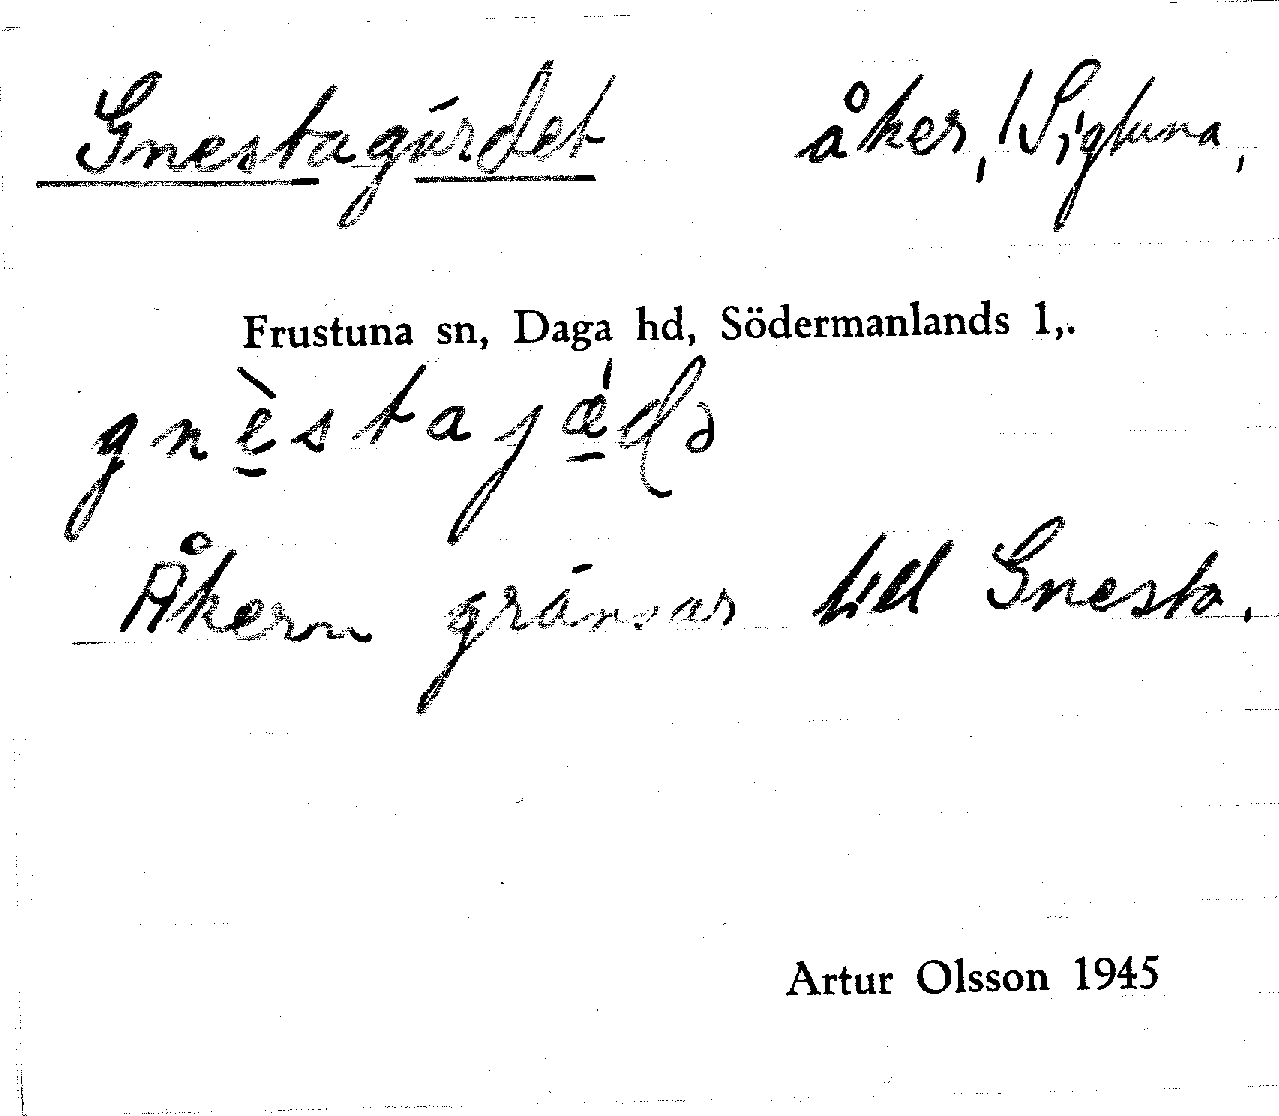 Gnestagärdet åker, / Sigtuna,
Frustuna sn, Daga hd, Södermanlands l,.
gnèstajæ̍ḍə
Åkern gränsar till Gnesta.
Artur Olsson 1945